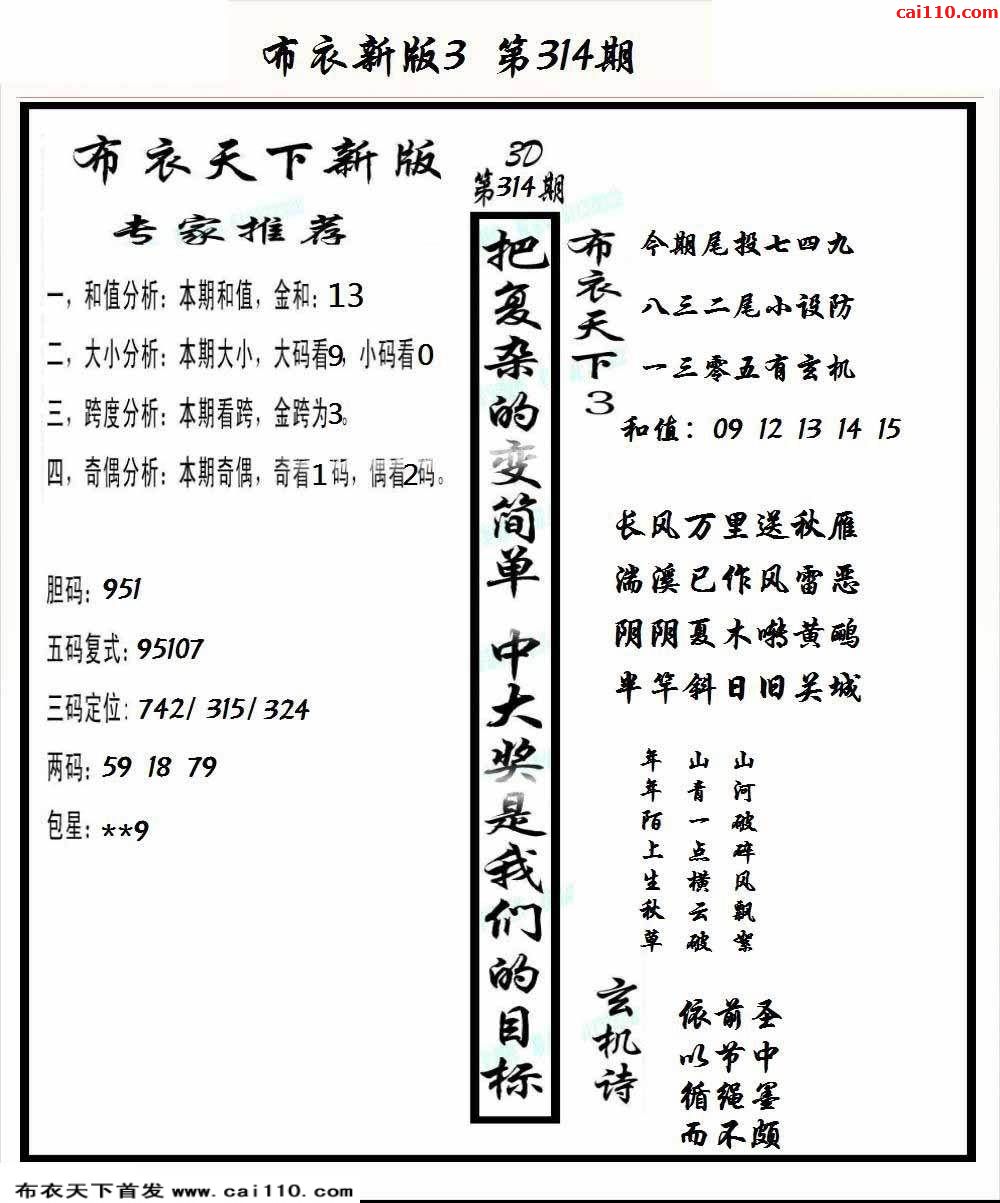 cai110.com
布衣新版3 第314期
布衣天下新版
专家推荐
一，和值分析：本期和值，金和：13
二，大小分析：本期大小，大码看9，小码看0
三，跨度分析：本期看跨，金跨为3。
四，奇偶分析：本期奇偶，奇看1码，偶看2码。
胆码：951
五码复式：95107
三码定位：742/ 315/ 324
两码：59 18 79
包星：**9
3D
第314期
把复杂的变简单 中大奖是我们的目标
布衣天下3
今期尾投七四九
八三二尾小设防
一三零五有玄机
和值：09 12 13 14 15
长风万里送秋雁
湍溪已作风雷恶
阴阴夏木啭黄鹂
半竿斜日旧关城
山河破碎风飘絮
山青一点横云破
年年陌上生秋草
玄机诗
依前圣
以节中
循绳墨
而不颇
布衣天下首发 www.cai110.com